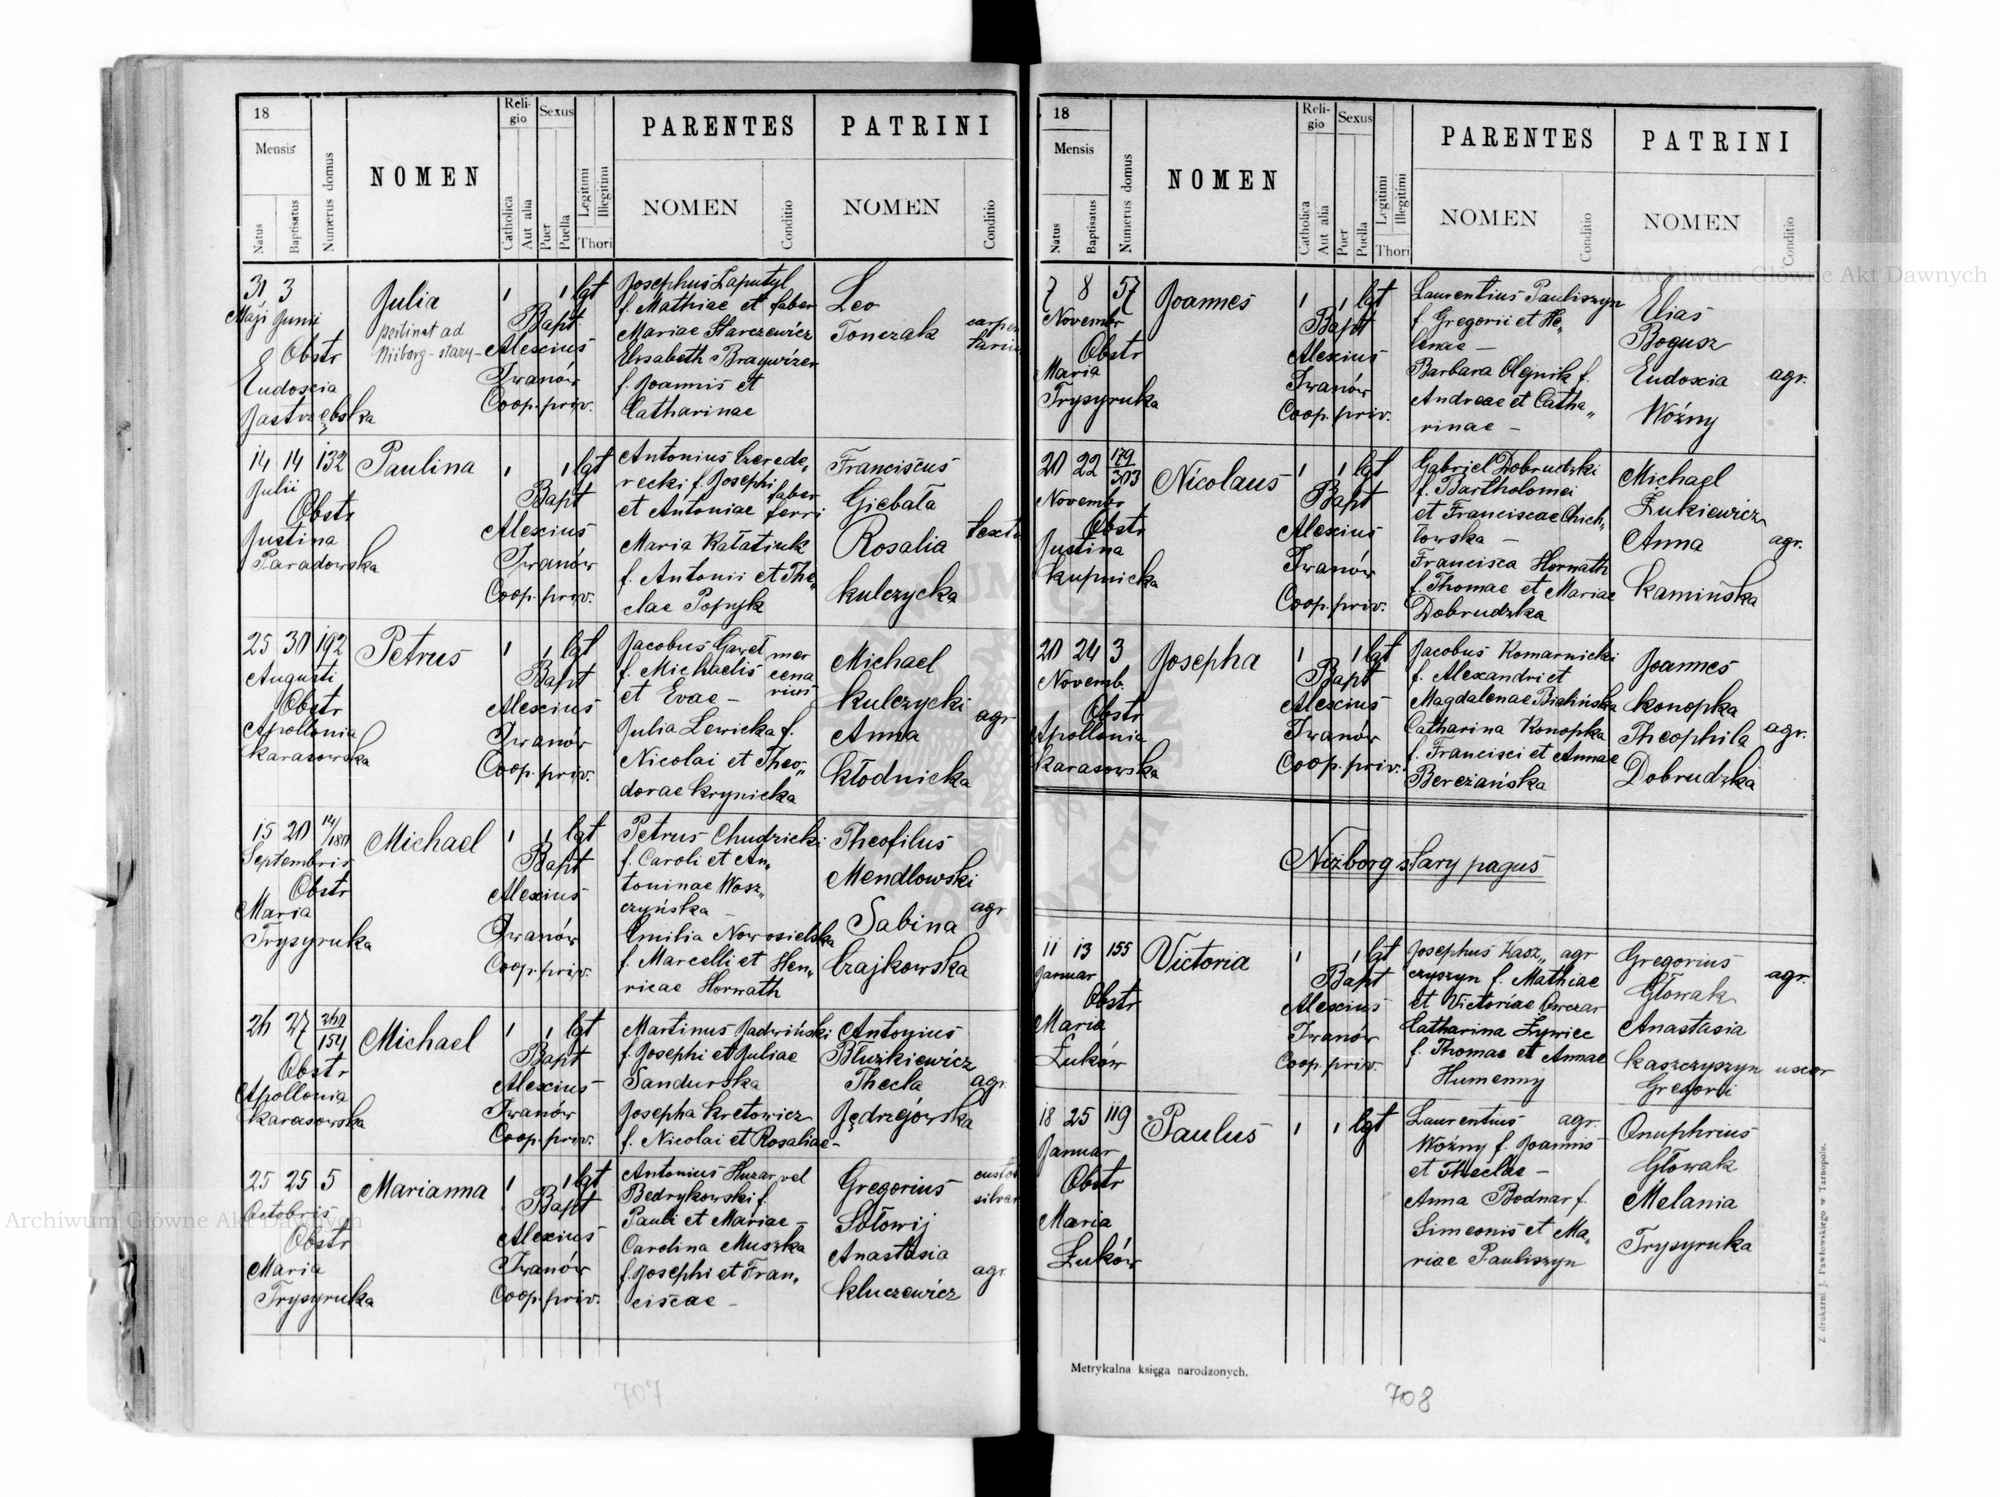 18
Mensis
Natus
Baptisatus
Numerus domus
NOMEN
Religio
Catholica
Aut alia
Sexus
Puer
Puella
Legitimi
Illegitimi
Thori
PARENTES
NOMEN
Conditio
PATRINI
NOMEN
Conditio
31 3
Maji Junii
Obstr
Eudoxia
Jastrzębska
Julia
pertinet ad
Niżborg-stary-
1 1 lgt
Bapt
Alexius
Iwanów
Coop. priv.
Josephus Łaputyl
f. Mathiae et faber
Mariae Starczewicz
Elisabeth
f. Joannis et
Catharinae
Leo
Tonczak
14 14 132
Julii
Obstr
Justina
Paradowska
Paulina
1 1 lgt
Bapt
Alexius
Iwanów
Coop. priv.
Antonius Czerede„
recki f. Josephi faber
et Antoniae ferri
Maria Kałatiuk
f. Antonii et The„
clae Popyk
Franciscus
Giebała
Rosalia
Kulczycka
25 30 192
Augusti
Obstr
Apollonia
Karasowska
Petrus
1 1 lgt
Bapt
Alexius
Iwanów
Coop. priv.
Jacobus Gaweł mer
f. Michaelis cena
et Evae – rius
Julia Lewicka f.
Nicolai et Theo„
dorae Krynicka
Michael
Kulczycki
Anna agr
Kłodnicka
15 20 14/180
Septembris
Obstr
Maria
Trysyruka
Michael
1 1 lgt
Bapt
Alexius
Iwanów
Coop. priv.
Petrus Chudzicki
f. Caroli et An„
toninae Wosz„
czyńska
Emilia Nowosielska
f. Marcelli et Hen„
ricae Horwath
Theofilus
Mendlowski
Sabina agr
Czajkowska
26 27 154
Obstr
Apollonia
Karasowska
Michael
1 1 lgt
Bapt
Alexius
Iwanów
Coop. priv.
Martinus Jadwiński
f. Josephi et Juliae
Sandurska
Josepha Kretowicz
f. Nicolai et Rosaliae –
Antonius
Błużkiewicz
Thecla agr.
Jędrzejowska
25 25 5
Octobris
Obstr
Maria
Trysyruka
Marianna
1 1 lgt
Bapt
Alexius
Iwanów
Coop. priv.
Antonius Huzar vel
Bedrykowski f.
Pauli et Mariae –
Carolina Muszka
f. Josephi et Fran„
ciscae –
Gregorius
Sołowij
Anastasia agr
Kluczewicz
707
18
Mensis
Natus
Baptisatus
Numerus domus
NOMEN
Religio
Catholica
Aut alia
Sexus
Puer
Puella
Legitimi
Illegitimi
Thori
PARENTES
NOMEN
Conditio
PATRINI
NOMEN
Conditio
7 8 57
Novembr
Obstr
Maria
Trysyruka
Joannes
1 1 lgt
Bapt
Alexius
Iwanów
Coop. priv.
Laurentius Pauliszyn
f. Gregorii et He„
lenae –
Barbara Olejnik f.
Andreae et Catha„
rinae –
Elias
Bogusz
Eudoxia agr.
Woźny
20 22 179/303
Novembr
Obstr
Justina
Kupnicka
Nicolaus
1 1 lgt
Bapt
Alexius
Iwanów
Coop. priv.
Gabriel Dobrudzki
f. Bartholomei
et Franciscae Chich„
łowska –
Francisca Horwath
f. Thomae et Mariae
Dobrudzka
Michael
Żukiewicz
Anna agr.
Kamińska
20 24 3
Novemb.
Obstr
Apollonia
Karasowska
Josepha
1 1 lgt
Bapt
Alexius
Iwanów
Coop. priv.
Jacobus Komarnicki
f. Alexandri et
Magdalenae Bialińska
Catharina Konopka
f. Francisci et Annae
Bereżańska
Joannes
Konopka
Theophila agr.
Dobrudzka
Niżborg stary pagus
11 13 155
Januar
Obstr
Maria
Żuków
Victoria
1 1 lgt
Bapt
Alexius
Iwanów
Coop. priv.
Josephus Kasz„ agr
czyszyn f. Mathiae
et Victoriae Owczar
Catharina Żywiec
f. Thomae et Annae
Humenny
Gregorius agr.
Głowak
Anastasia
Kaszczyszyn uxor
Gregorii
18 25 119
Januar
Obstr
Maria
Żuków
Paulus
1 1 lgt
Laurentius agr.
Woźny f. Joannis
et Theclae –
Anna Bodnar f.
Simeonis et Ma„
riae Pauliszyn
Onuphrius
Głowak
Melania
Trysyruka
Metrykalna księga narodzonych.
Z drukarni J. Pawłowskiego w Tarnopolu.
708
Archiwum Główne Akt Dawnych
Archiwum Główne Akt Dawnych